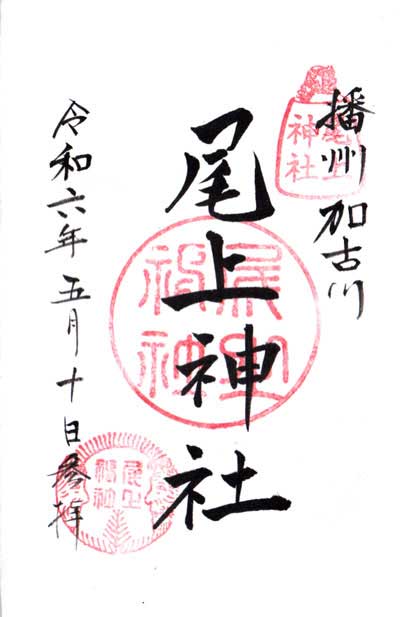 播州 加古川
尾上
神社
尾上神社
尾上
神社
令和六年五月十日参拝
尾上
神社